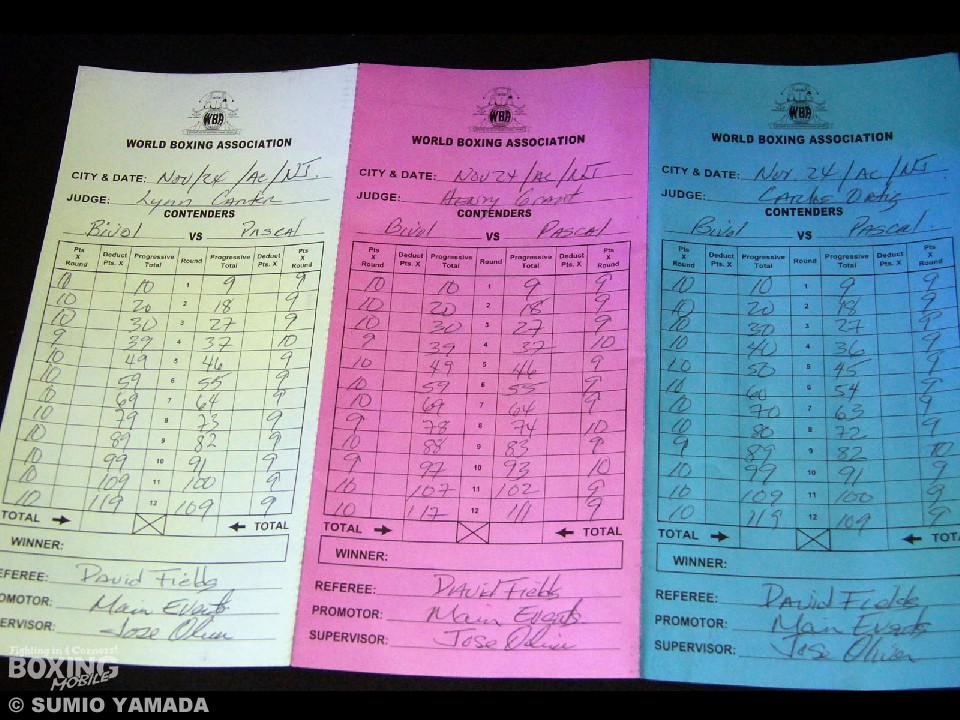 WBA
WORLD BOXING ASSOCIATION
CITY & DATE: Nov/24/AC/NJ.
JUDGE: Lynn Carter
CONTENDERS
Bivol VS Pascal
Pts X Round Deduct Pts. X Progressive Total Round Progressive Total Deduct Pts. X Pts X Round
10 10 1 9 9
10 20 2 18 9
10 30 3 27 9
9 39 4 37 10
10 49 5 46 9
10 59 6 55 9
10 69 7 64 9
10 79 8 73 9
10 89 9 82 9
10 99 10 91 9
10 109 11 100 9
10 119 12 109 9
TOTAL TOTAL
WINNER:
EFEREE: David Fields
OMOTOR: Main Events
ERVISOR: Jose Oliver
WBA
WORLD BOXING ASSOCIATION
CITY & DATE: Nov 24/AC/NJ
JUDGE: Henry Grant
CONTENDERS
Bivol VS Pascal
Pts X Round Deduct Pts. X Progressive Total Round Progressive Total Deduct Pts. X Pts X Round
10 10 1 9 9
10 20 2 18 9
10 30 3 27 9
9 39 4 37 10
10 49 5 46 9
10 59 6 55 9
10 69 7 64 9
9 78 8 74 10
10 88 9 83 9
9 97 10 93 10
10 107 11 102 9
10 117 12 111 9
TOTAL TOTAL
WINNER:
REFEREE: David Fields
PROMOTOR: Main Events
SUPERVISOR: Jose Oliver
WBA
WORLD BOXING ASSOCIATION
CITY & DATE: Nov. 24/AC/NJ
JUDGE: Carlos Ortiz
CONTENDERS
Bivol VS Pascal
Pts X Round Deduct Pts. X Progressive Total Round Progressive Total Deduct Pts. X Pts X Round
10 10 1 9 9
10 20 2 18 9
10 30 3 27 9
10 40 4 36 9
10 50 5 45 9
10 60 6 54 9
10 70 7 63 9
10 80 8 72 9
9 89 9 82 10
10 99 10 91 9
10 109 11 100 9
10 119 12 109 9
TOTAL TOT
WINNER:
REFEREE: David Fields
PROMOTOR: Main Events
SUPERVISOR: Jose Oliver
Fighting in 4 Corners!
BOXING
MOBILE
© SUMIO YAMADA